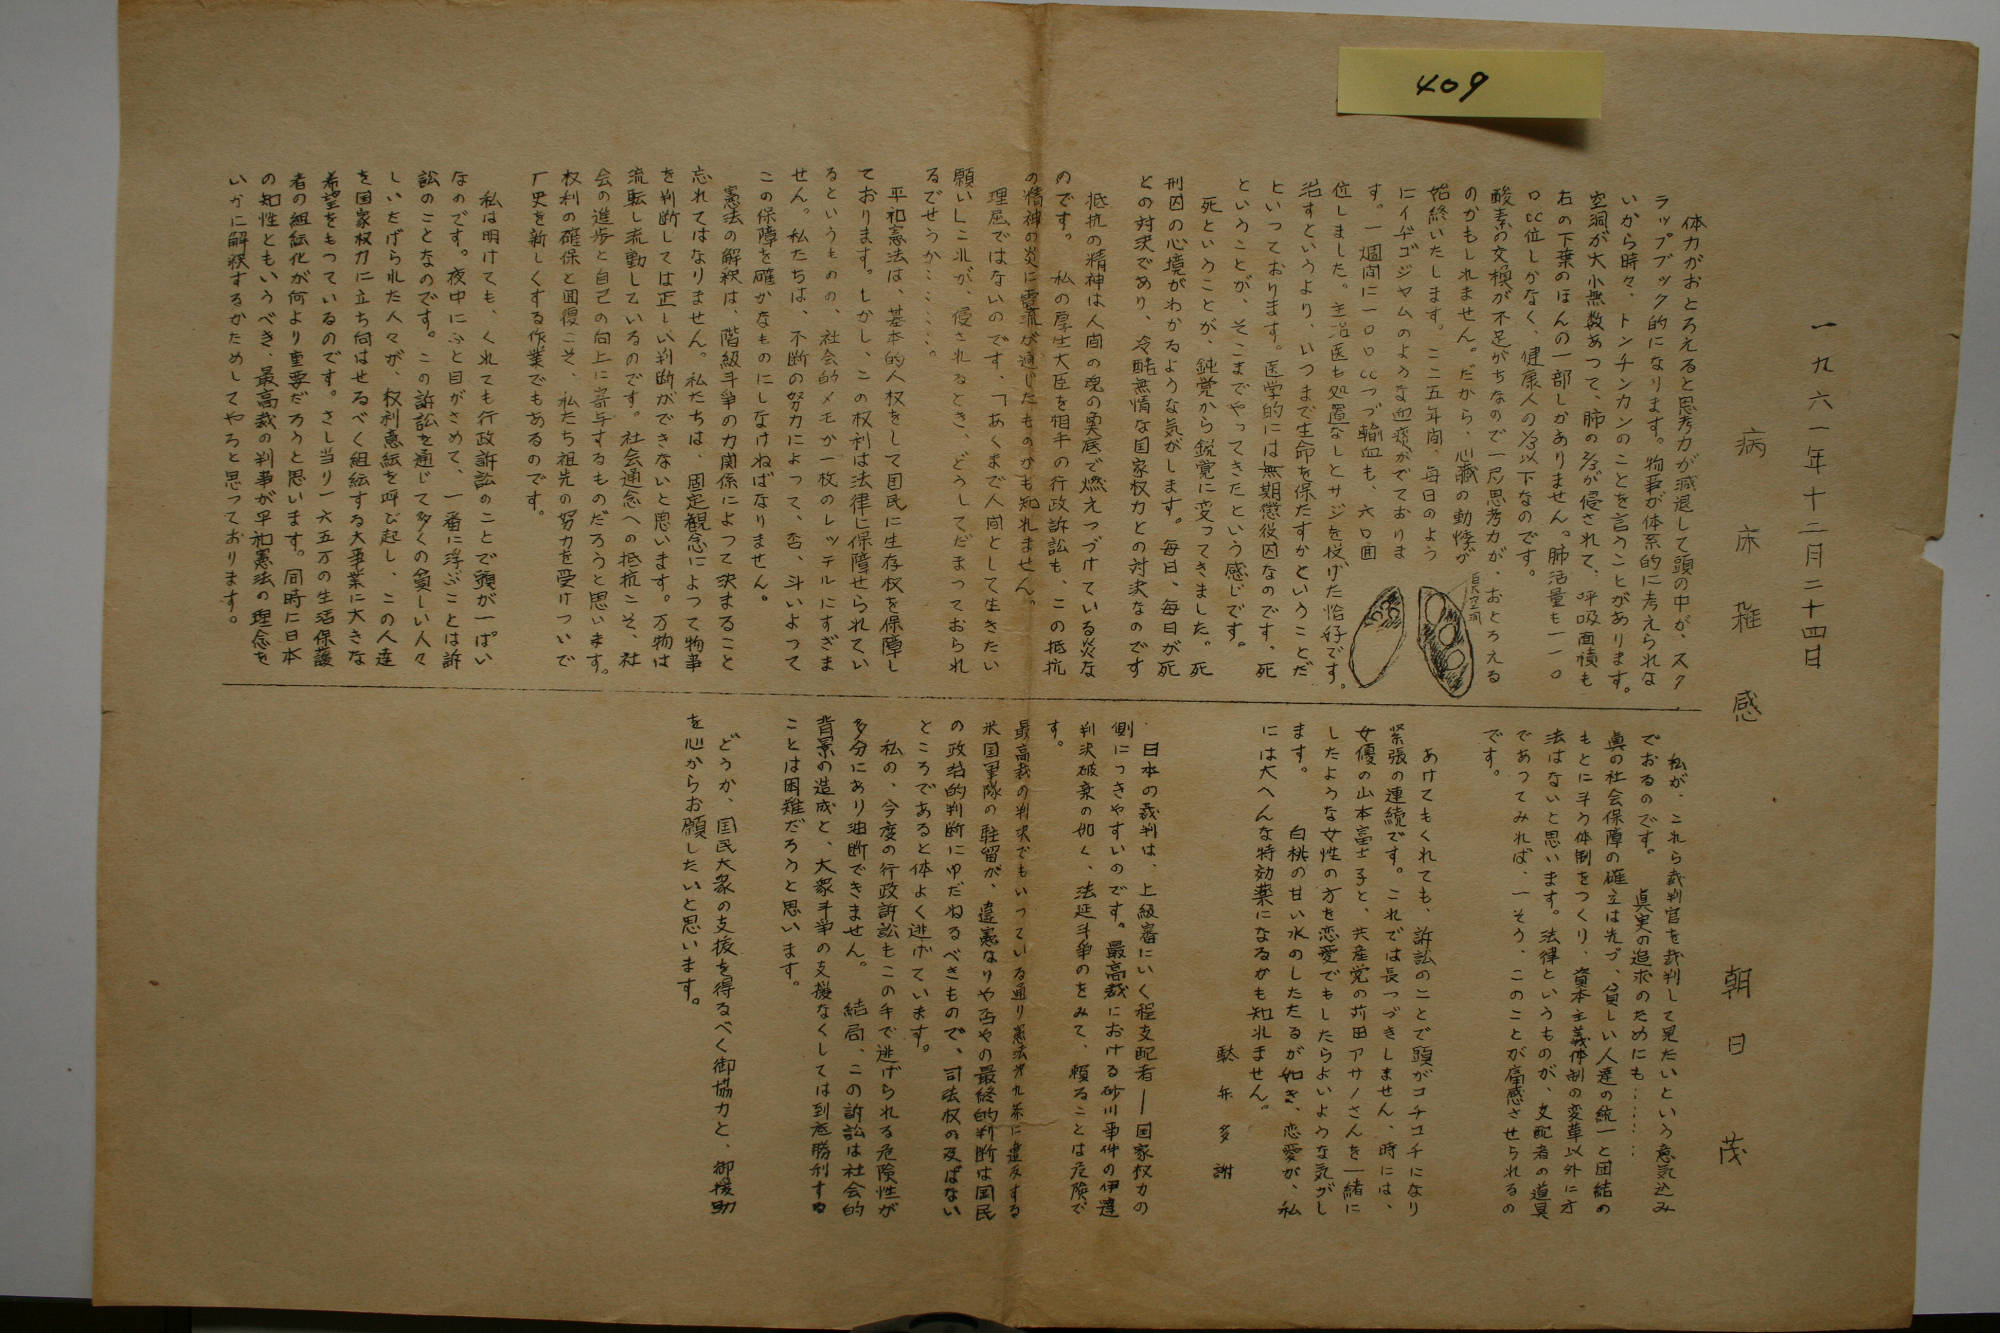 409
一九六一年十二月二十四日
病床雑感
朝日茂
体力がおとろえると思考力が減退して頭の中が、スク
ラップブック的になります。物事が体系的に考えられな
いから時々、トンチンカンのことを言うことがあります。
空洞が大小無数あつて、肺の⅔が侵されて、呼吸面積も
右の下葉のほんの一部しかありません。肺活量も一一〇
〇cc位しかなく、健康人の⅓以下なのです。
酸素の交換が不足がちなので一尸思考力が、おとろえる
のかもしれません。だから、心臓の動悸が
始終いたします。ここ五年間、毎日のよう
にイチゴジャムのような血痰がでておりま
す。一週間に一〇〇ccづつ輸血も、六〇回
位しました。主治医も処置なしとサジを投げた恰好です。
治すというより、いつまで生命を保たすかということだ
といつております。医学的には無期懲役囚なのです、死
ということが、そこまでやってきたという感じです。
死ということが、鈍覚から鋭覚に変ってきました。死
刑囚の心境がわかるような気がします。毎日、毎日が死
との対決であり、冷酷無情な国家权力との対決なのです
抵抗の精神は人间の魂の奥底で燃えつづけている炎な
のです。 私の厚生大臣を相手の行政訴訟も、この抵抗
の精神の炎に電流が通じたものかも知れません。
理屈ではないのです、「あくまで人间として生きたい
願い」これが、侵されるとき、どうしてだまっておられ
るでせうか……。
平和憲法は、基本的人权をして国民に生存权を保障し
ております。しかし、この权利は法律に保障せられてい
るというものの、社会的メモか一枚のレッテルにすぎま
せん。私たちは、不断の努力によって、否、斗いよって
この保障を確かなものにしなければなりません。
憲法の解釈は、階級斗争の力関係によつて決まること
忘れてはなりません。私たちは、固定観念によつて物事
を判断しては正しい判断ができないと思います。万物は
流転し流動しているのです。社会通念への抵抗こそ、社
会の進歩と自己の向上に寄与するものだろうと思います。
权利の確保と回復こそ、私たち祖先の努力を受けついで
厂史を新しくする作業でもあるのです。
私は明けても、くれても行政訴訟のことで頭が一ぱい
なのです。夜中にふと目がさめて、一番に浮ぶことは訴
訟のことなのです。この訴訟を通じて多くの貧しい人々
しいたげられた人々が、权利意絋を呼び起し、この人達
を国家权力に立ち向はせるべく組絋する大事業に大きな
希望をもつているのです。さし当り一六五万の生活保護
者の組絋化が何より重要だろうと思います。同時に日本
の知性ともいうべき、最高裁の判事が平和憲法の理念を
いかに解釈するかためしてやろと思っております。
巨大空洞
私が、これら裁判官を裁判して見たいという意気込み
でおるのです。 眞実の追求のためにも……
眞の社会保障の確立は先づ、貧しい人達の統一と団結の
もとに斗う体制をつくり、資本主義体制の変革以外に方
法はないと思います。法律というものが、支配者の道具
であつてみれば、一そう、このことが痛感させられるの
です。
あけてもくれても、訴訟のことで頭がコチコチになり
緊張の連続です。これでは長つづきしません、時には、
女優の山本富士子と、共産党の苅田アサノさんを一緒に
したような女性の方を恋愛でもしたらよいような気がし
ます。 白桃の甘い水のしたたるが如き、恋愛が、私
には大へんな特効薬になるかも知れません。
駄弁多謝
日本の裁判は、上級審にいく程支配者――国家权力の
側につきやすいのです。最高裁における砂川事件の伊達
判決破棄の如く、法廷斗争のをみて、頼ることは危険で
す。
最高裁の判決でもいつている通り憲法才九条に違反する
米国軍隊の駐留が、違憲なりや否やの最終的判断は国民
の政治的判断にゆだねるべきもので、司法权の及ばない
ところであると体よく逃げています。
私の、今度の行政訴訟もこの手で逃げられる危険性が
多分にあり油断できません。 結局、この訴訟は社会的
背景の造成と、大衆斗争の支援なくしては到底勝利する
ことは困難だろうと思います。
どうか、国民大衆の支援を得るべく御協力と、御援助
を心からお願したいと思います。